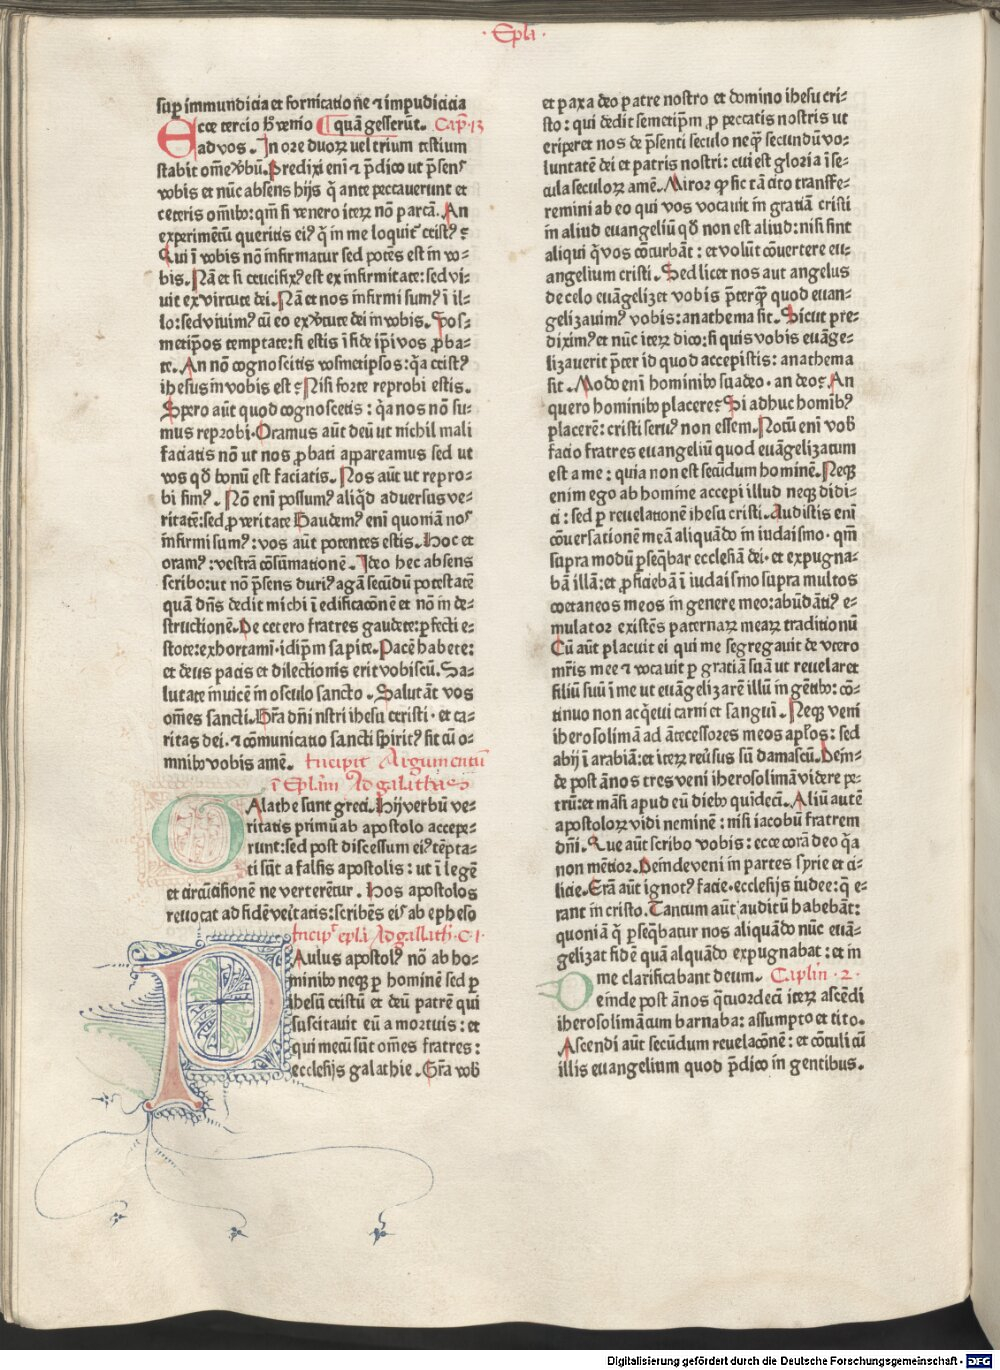 · Epla ·
sup immundicia et fornicatione ⁊ impudicicia
Ecce tercio h̄ venio ¶ quā gesserūt. Cap. 13
ad vos. In ore duoꝝ uel trium testium
stabit om̄e v̓bū. Predixi enī ⁊ p̄dico ut p̄sens
vobis et nūc absens hijs q̄ ante peccauerunt et
ceteris om̄ibꝰ: qm̄ si venero iteꝝ nō parcā. An
experimētū queritis eiꝰ q̄ in me loquit᷑ cristꝰ?
Qui ī vobis nō infirmatur sed potēs est in vo-
bis. Nā et si crucifixꝰ est ex infirmitate: sed vi-
uit ex virtute dei. Nā et nos infirmi sumꝰ ī il-
lo: sed viuimꝰ cū eo ex v̓tute dei in vobis. Vos-
metip̄os temptate: si estis ī fide ip̄i vos ꝓba-
te. An nō cognoscitis vosmetipsos: q̓a cristꝰ
ihesus in vobis est? Nisi forte reprobi estis.
Spero aūt quod cognoscetis: q̓a nos nō su-
mus reprobi. Oramus aūt deū ut nichil mali
faciatis nō ut nos ꝓbati appareamus sed ut
vos qd̄ bonū est faciatis. Nos aūt ut repro-
bi simꝰ. Nō enī possumꝰ aliq̓d aduersus ve-
ritatē: sed ꝓ veritate Gaudemꝰ enī quoniā nos
infirmi sumꝰ: vos aūt potentes estis. Hoc et
oramꝰ: vestrā cōsūmationē. Ideo hec absens
scribo: ut nō p̄sens duriꝰ agā secūdū potestatē
quā dn̄s dedit michi ī edificacōnē et nō in de-
structionē. De cetero fratres gaudete: ꝑfecti e-
stote: exhortamī. idip̄m sapite. Pacē habete:
et deus pacis et dilectionis erit vobiscū. Sa-
lutate inuicē in osculo sancto. Salutāt vos
om̄es sancti. Gr̄a dn̄i nstri ihesu cristi. et ca-
ritas dei. ⁊ cōmunicatio sancti spiritꝰ sit cū o-
mnibꝰ vobis amē. Incipit Argumentū
ī Eplam Ad galathas
Galathe sunt greci. Hij verbū ve-
ritatis primū ab apostolo accepe-
runt: sed post discessum eiꝰ tēpta-
ti sūt a falsis apostolis: ut ī legē
et circūcisionē ne verterētur. Hos apostolos
reuocat ad fidē veritatis: scribēs eis ab epheso
Incip̄ epla Ad gallath. C. 1.
Paulus apostolꝰ nō ab ho-
minibꝰ neqꝫ ꝑ hominē sed ꝑ
ihesū cristū et deū patrē qui
suscitauit eū a mortuis: et
qui mecū sūt om̄es fratres:
ecclesijs galathie. Gr̄a vob
et pax a deo patre nostro et domino ihesu cri-
sto: qui dedit semetip̄m ꝓ peccatis nostris ut
eriperet nos de p̄senti seculo neqꝫ secundū vo-
luntatē dei et patris nostri: cui est gloria ī se-
cula seculoꝝ amē. Miror qꝫ sic tā cito transfe-
remini ab eo qui vos vocauit in gratiā cristi
in aliud euangeliū qd̄ non est aliud: nisi sint
aliqui q̄ vos cōturbāt: et volūt cōuertere eu-
angelium cristi. Sed licet nos aut angelus
de celo euāgelizet vobis p̄terqꝫ quod euan-
gelizauimꝰ vobis: anathema sit. Sicut pre-
diximꝰ et nūc iteꝝ dico: si quis vobis euāge-
lizauerit p̄ter id quod accepistis: anathema
sit. Modo enī hominibꝰ suadeo. an deo? An
quero hominibꝰ placere? Si adhuc homībꝰ
placerē: cristi seruꝰ non essem. Notū enī vob̄
facio fratres euangeliū quod euāgelizatum
est a me: quia non est secūdum hominē. Neqꝫ
enim ego ab homine accepi illud neqꝫ didi-
ci: sed ꝑ reuelationē ihesu cristi. Audistis enī
cōuersationē meā aliquādo in iudaismo. qm̄
supra modū ꝑseq̄bar ecclesiā dei. et expugna-
bā illā: et ꝓficiebā ī iudaismo supra multos
coetaneos meos in genere meo: abūdātiꝰ e-
mulator existēs paternaꝝ meaꝝ traditionū
Cū aūt placuit ei qui me segregauit de vtero
mr̄is mee ⁊ vocauit ꝑ gratiā suā ut reuelaret
filiū suū ī me ut euāgelizarē illū in gētibꝰ: cō-
tinuo non acq̓eui carni et sanguī. Neqꝫ veni
iherosolimā ad ātecessores meos apl̓os: sed
abij ī arabiā: et iteꝝ reūsus sū damascū. Dein-
de post ānos tres veni iherosolimā videre pe-
trū: et māsi apud eū diebꝰ quīdecī. Aliū autē
apostoloꝝ vidi neminē: nisi iacobū fratrem
dn̄i. Que aūt scribo vobis: ecce corā deo q̓a
non mētior. Deinde veni in partes syrie et ci-
licie. Erā aūt ignotꝰ facie. ecclesijs iudee: q̄ e-
rant in cristo. Tantum aūt auditū habebāt:
quoniā q̄ ꝑseq̄batur nos aliquādo nūc euā-
gelizat fidē quā alquādo expugnabat: et in
me clarificabant deum. Caplm · 2 ·
Deinde post ānos q̓tuordecī iteꝝ ascēdi
iherosolimā cum barnaba: assumpto et tito.
Ascendi aūt secūdum reuelacōnē: et cōtuli cū
illis euangelium quod p̄dico in gentibus.
Digitalisierung gefördert durch die Deutsche Forschungsgemeinschaft - DFG